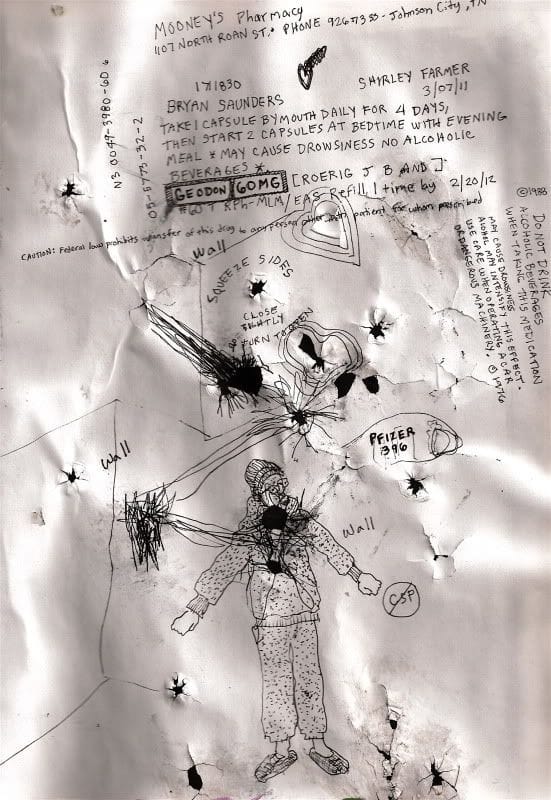 MOONEY'S PHARMACY
1107 NORTH ROAN ST. PHONE 926-7333 - JOHNSON CITY, TN
171830
SHIRLEY FARMER
BRYAN SAUNDERS
3/07/11
TAKE 1 CAPSULE BY MOUTH DAILY FOR 4 DAYS,
THEN START 2 CAPSULES AT BEDTIME WITH EVENING
MEAL * MAY CAUSE DROWSINESS NO ALCOHOLIC
BEVERAGES *
GEODON 60MG [ROERIG J B AND]
RPh-MLM / EAS Refill 1 time by 2/20/12
CAUTION: Federal law prohibits transfer of this drug to any person other than patient for whom prescribed
N3 0049-3980-60 6
©1988
DO NOT DRINK
ALCOHOLIC BEVERAGES
WHEN TAKING THIS MEDICATION
MAY CAUSE DROWSINESS
ALCOHOL MAY INTENSIFY THIS EFFECT.
USE CARE WHEN OPERATING A CAR
OR DANGEROUS MACHINERY. ©1976
Wall
SQUEEZE SIDES
CLOSE
TIGHTLY
TURN TO OPEN
PFIZER
396
Wall
Wall
CSP